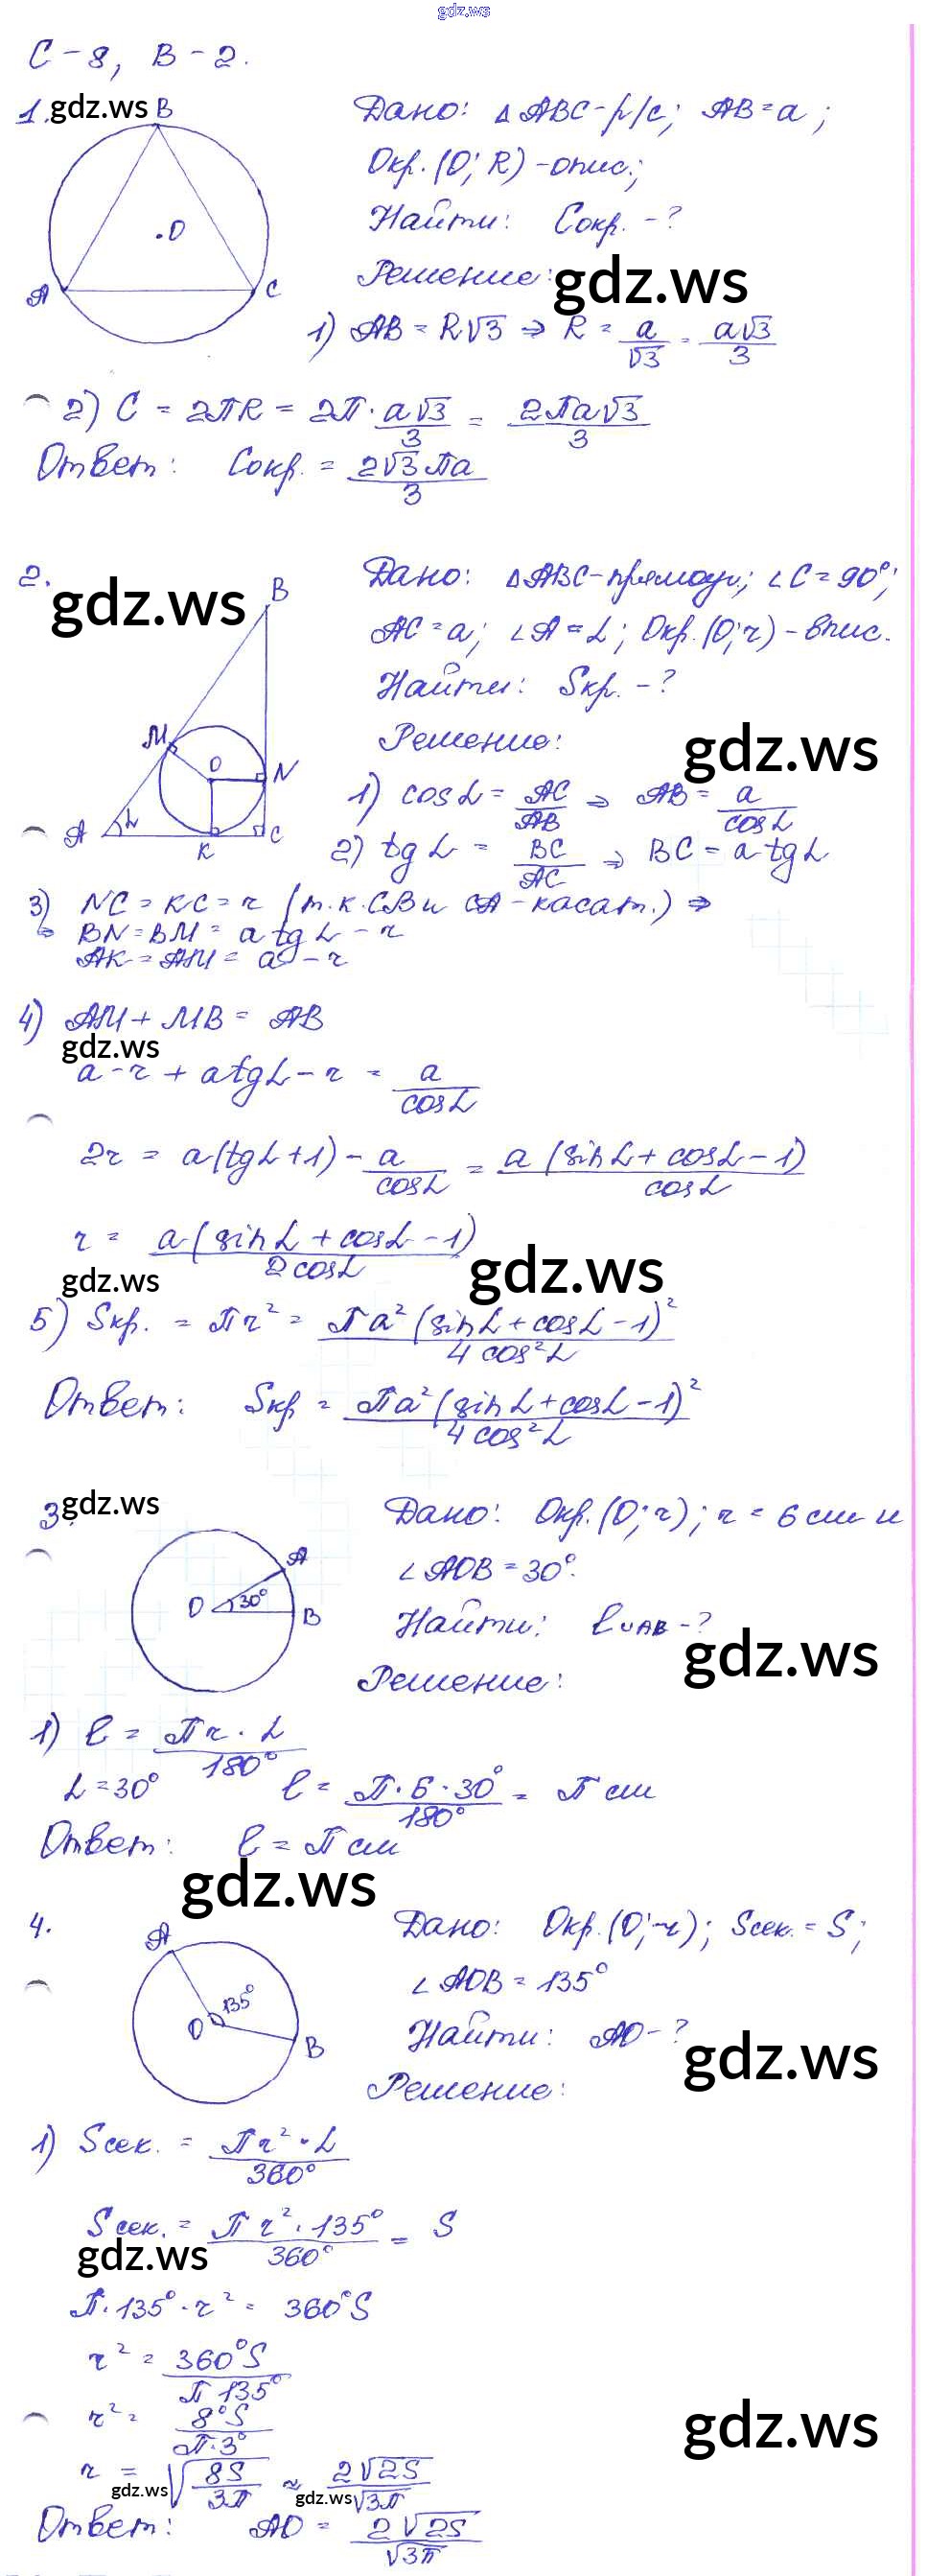 gdz.ws
С-8, В-2.
1. gdz.ws
B
.O
A
C
Дано: △ABC-р/с; AB=a;
Окр.(O; R)-опис.;
Найти: Cокр. -?
Решение:
gdz.ws
1) AB = R√3 ⇒ R = a/√3 = a√3/3
2) C = 2ПR = 2П·a√3/3 = 2Пa√3/3
Ответ: Cокр. = 2√3Пa/3
2.
gdz.ws
B
M
O
N
A
L
K
C
Дано: △ABC-прямоуг.; ∠C=90°;
AC=a; ∠A=L; Окр.(O;r)-впис.
Найти: Sкр. -?
Решение:
gdz.ws
1) cosL = AC/AB ⇒ AB = a/cosL
2) tgL = BC/AC ⇒ BC = a tgL
3) NC=KC=r (т.к. CB и CA-касат.) ⇒
⇒ BN=BM= a tgL - r
AK=AM= a-r
4) AM+MB= AB
gdz.ws
a-r + atgL-r = a/cosL
2r = a(tgL+1)-a/cosL = a(sinL+cosL-1)/cosL
r = a(sinL+cosL-1)/2cosL
gdz.ws
gdz.ws
5) Sкр. = Пr² = Пa²(sinL+cosL-1)²/4cos²L
Ответ: Sкр = Пa²(sinL+cosL-1)²/4cos²L
3. gdz.ws
A
O
30°
B
Дано: Окр.(O;r); r=6см и
∠AOB=30°.
Найти: l∪AB -?
gdz.ws
Решение:
1) l = Пr·L/180°
L=30° l = П·6·30°/180° = П см
Ответ: l=П см
gdz.ws
4.
A
135°
O
B
Дано: Окр.(O;r); Sсек.=S;
∠AOB=135°
Найти: AO-?
gdz.ws
Решение:
1) Sсек. = Пr²·L/360°
Sсек. = Пr²·135°/360° = S
gdz.ws
П·135°·r² = 360°S
r² = 360°S/П 135°
r² = 8°S/П·3°
gdz.ws
r = √8S/3П ≈ 2√2S/√3П
gdz.ws
gdz.ws
Ответ: AO = 2√2S/√3П